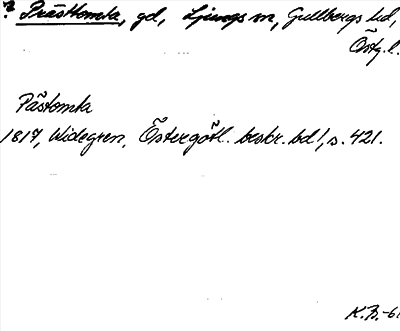 ? Prästtomta, gd, Ljungs sn, Gullbergs hd,
Östg. l.
Pästomta
1817, Widegren, Östergötl. beskr. bd 1, s. 421.
K.B.-61